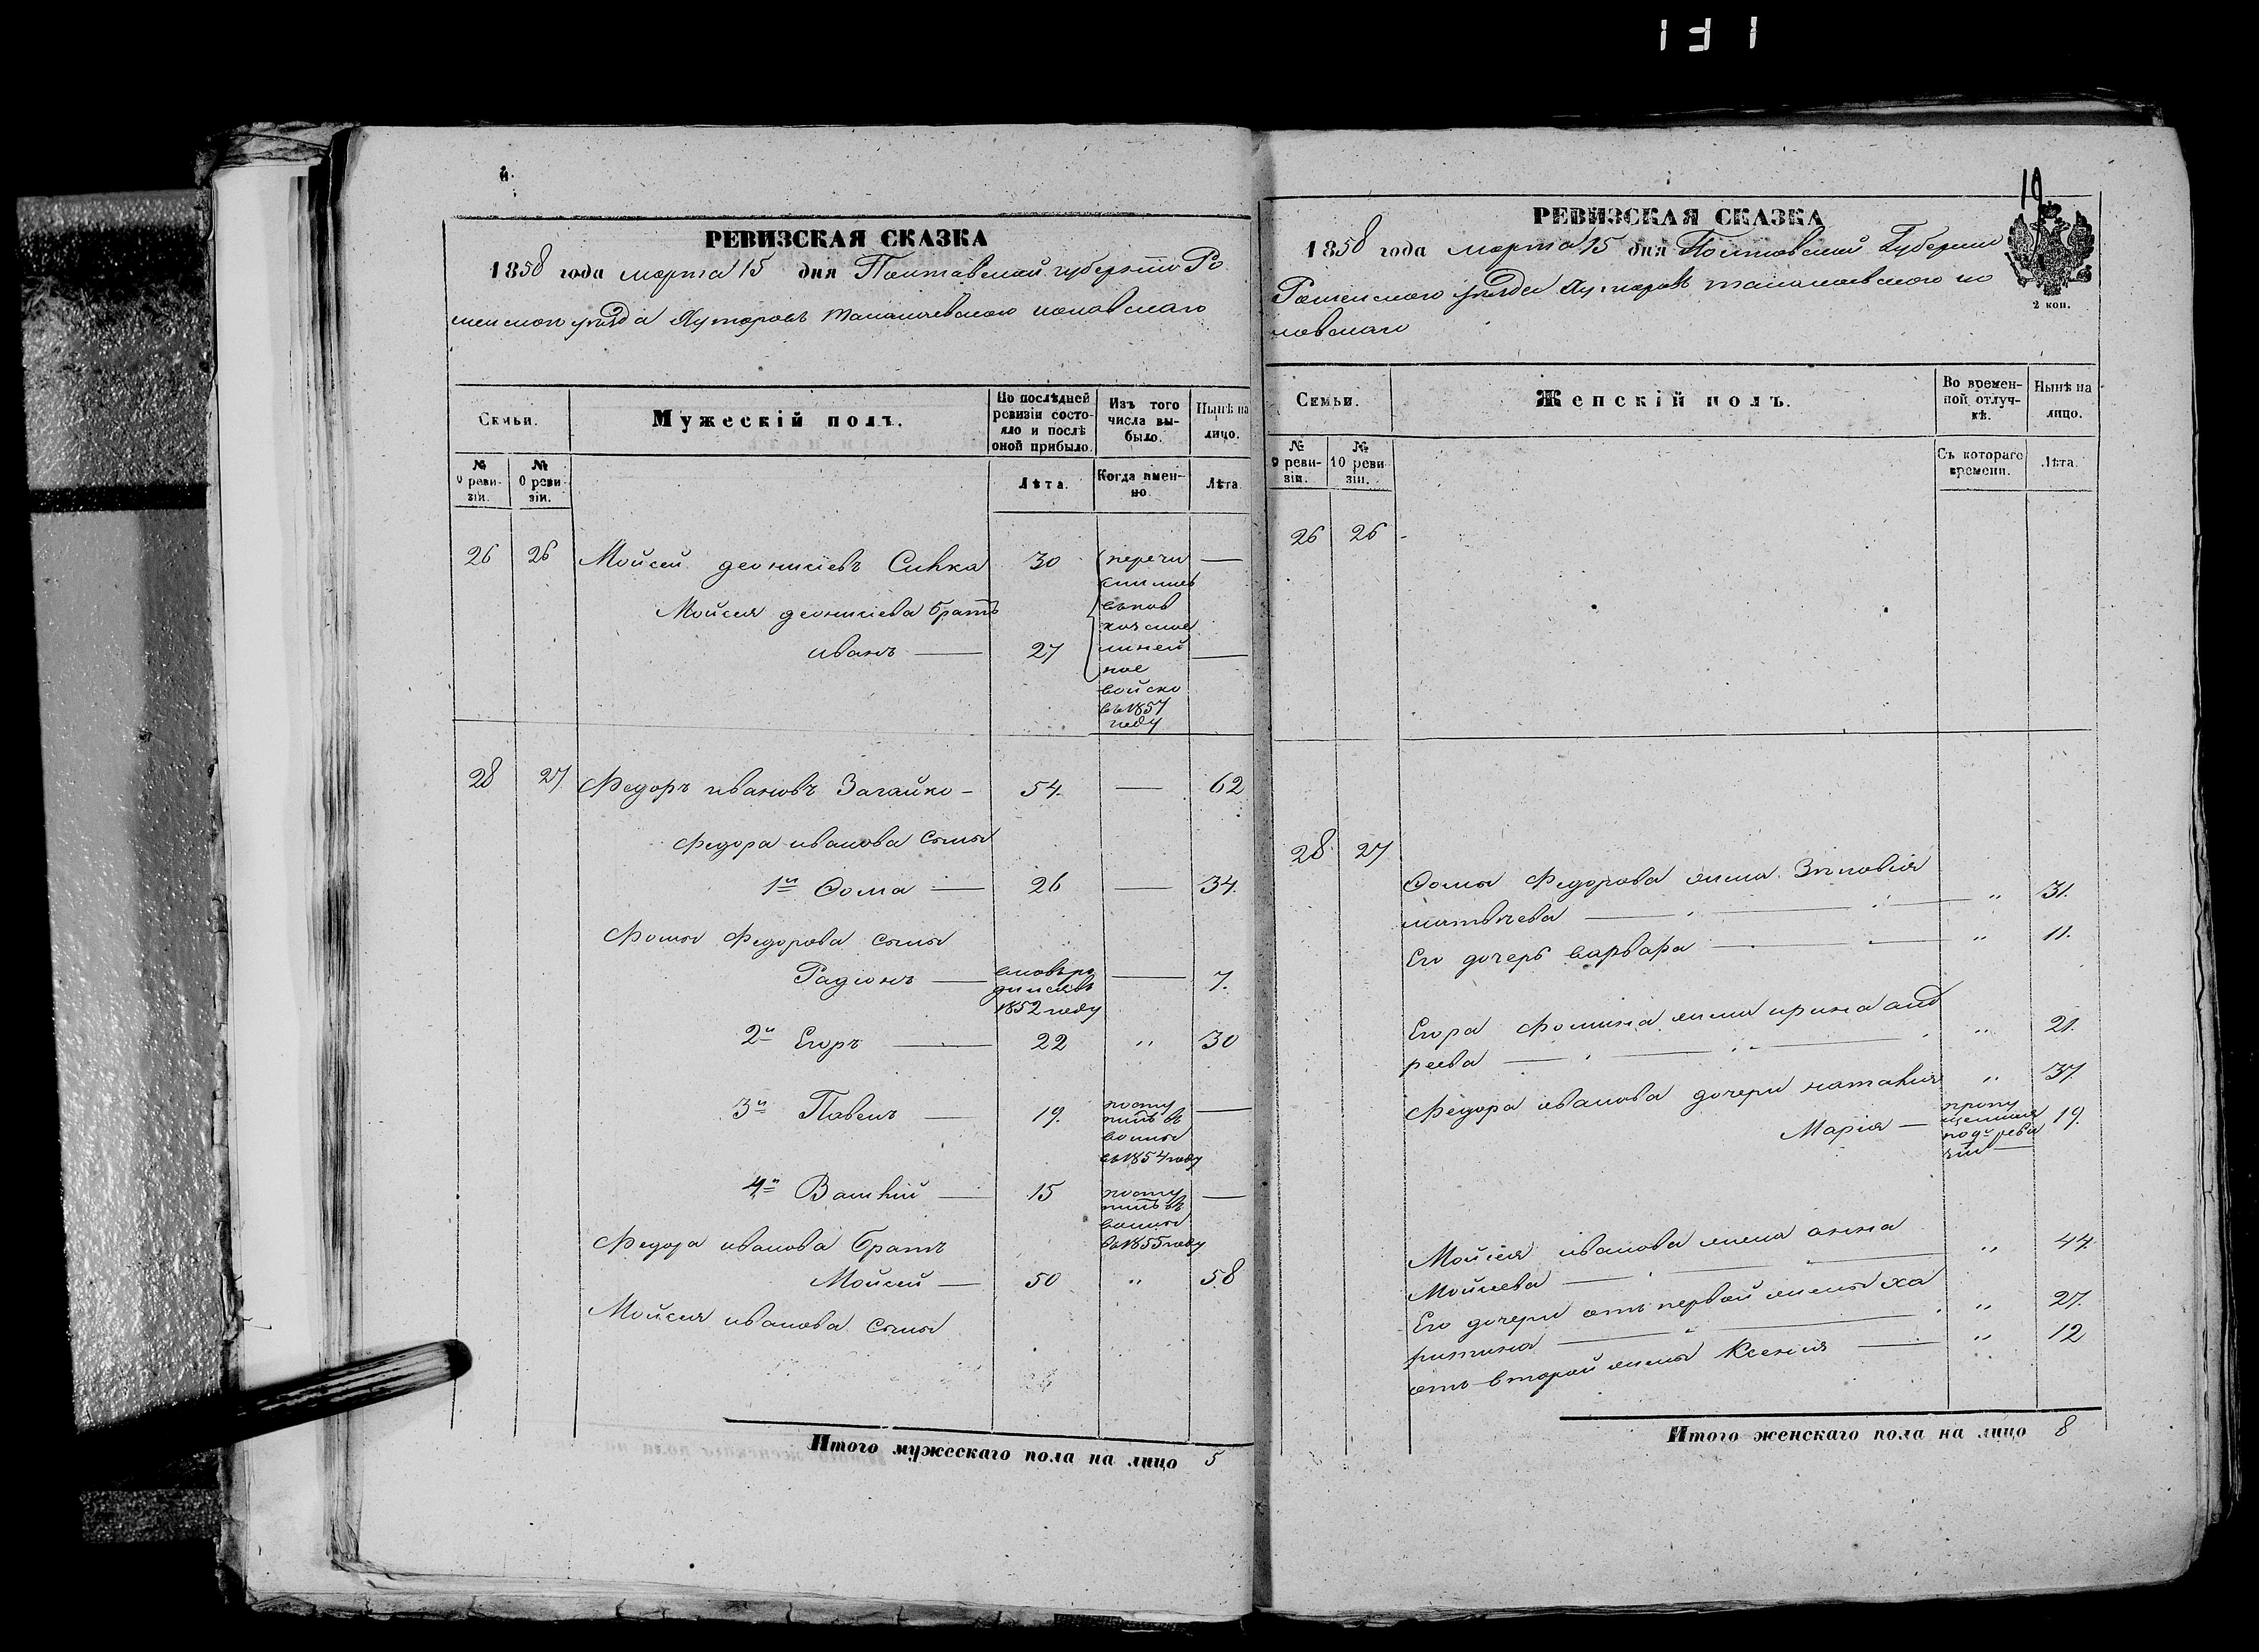 131
РЕВИЗСКАЯ СКАЗКА
1858 года марта 15 дня Полтавской губерніи Ро
менскои уѣзда Хуторовъ Талалаевского
Семьи.
Мужескій полъ.
По послѣдней ревизіи состояло и послѣ оной прибыло.
Изъ того числа выбыло.
Нынѣ на лицо.
№ 9 ревизіи.
№ 10 ревизіи.
Лѣта.
Когда именно.
Лѣта.
26 26 Мойсей деонисіевъ Синка 30 перечи
слились
Мойсея деонисіева братъ
иванъ 27 линей
ное
войско
въ 1857
году
28 27 Федоръ ивановъ Загайко 54 — 62
Федора иванова сыны
1й Фома — 26 — 34.
Фомы Федорова сыны
Радіонъ — — 7.
1852 году
2й Егоръ — 22 " 30
3й Павелъ — 19. посту
пилъ въ
воины
въ 1854 году
4й Василій — 15 посту
пилъ въ
воины
въ 1855 году
Федора иванова братъ
Мойсей — 50 " 58
Мойсея иванова сыны
Итого мужескаго пола на лицо 5
19
РЕВИЗСКАЯ СКАЗКА
1858 года марта 15 дня Полтавской Губерніи
Роменского уѣзда Хуторовъ талалаевского
2 коп.
Семьи.
Женскій полъ.
Во временной отлучкѣ.
Нынѣ на лицо.
№ 9 ревизіи.
№ 10 ревизіи.
Съ котораго времени.
Лѣта.
26 26
28 27
Фомы Федорова жена Зиновія
матвѣева — " 31.
Его дочерь варвара — " 11.
Егора Фомина жена ирина анд
реева — " 21.
Федора иванова дочери наталия " 37
Марія — пропу
щенная
по 9й реви
зіи 19.
Мойсея иванова жена анна
Мойсеева — " 44
Его дочери отъ первой жены ха
ритина — " 27.
отъ второй жены Ксенія — " 12
Итого женскаго пола на лицо 8